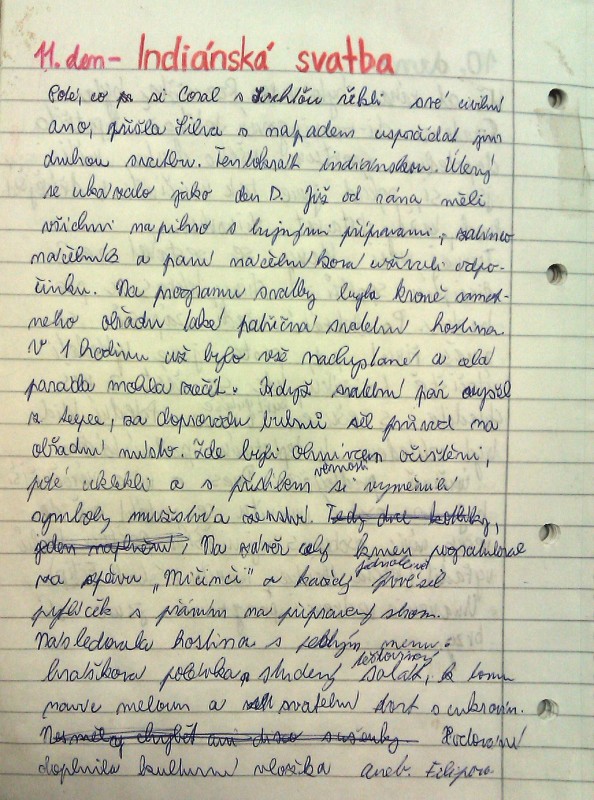 11. den - Indiánská svatba
Poté, co si Coral s řekli své civilní
ano, přišla Silva s nápadem uspořádat jim
druhou svatbu. Tentokrát indiánskou. Úterý
se ukázalo jako den D. Již od rána měli
všichni napilno s bujnými přípravami, zatímco
náčelník a paní náčelníková užívali odpo-
činku. Na programu svatby byla kromě samot-
ného obřadu také patřičná svatební hostina.
V 1 hodinu už bylo vše nachystané a celá
paráda mohla začít. Když svatební pár vyšel
z teepee, za doprovodu bubnů šel průvod na
obřadní místo. Zde byli ohnivcem očištěni,
poté uklekli a s příslibem věrnosti si vyměnili
symboly mužství a ženství. Tedy dva kolíky,
jeden naplněný, Na závěr celý kmen pogratuloval
za zpěvu „Mičinči" a každý jednotlivě pověsil
pytlíček s přáním na připravený strom.
Následovala hostina s menu:
hrášková polévka, studený těstovinový salát, k tomu
navíc meloun a svatební dort s cukrovím.
Nesměly chybět ani disco sušenky. Hodování
doplnila kulturní vložka aneb Filipova